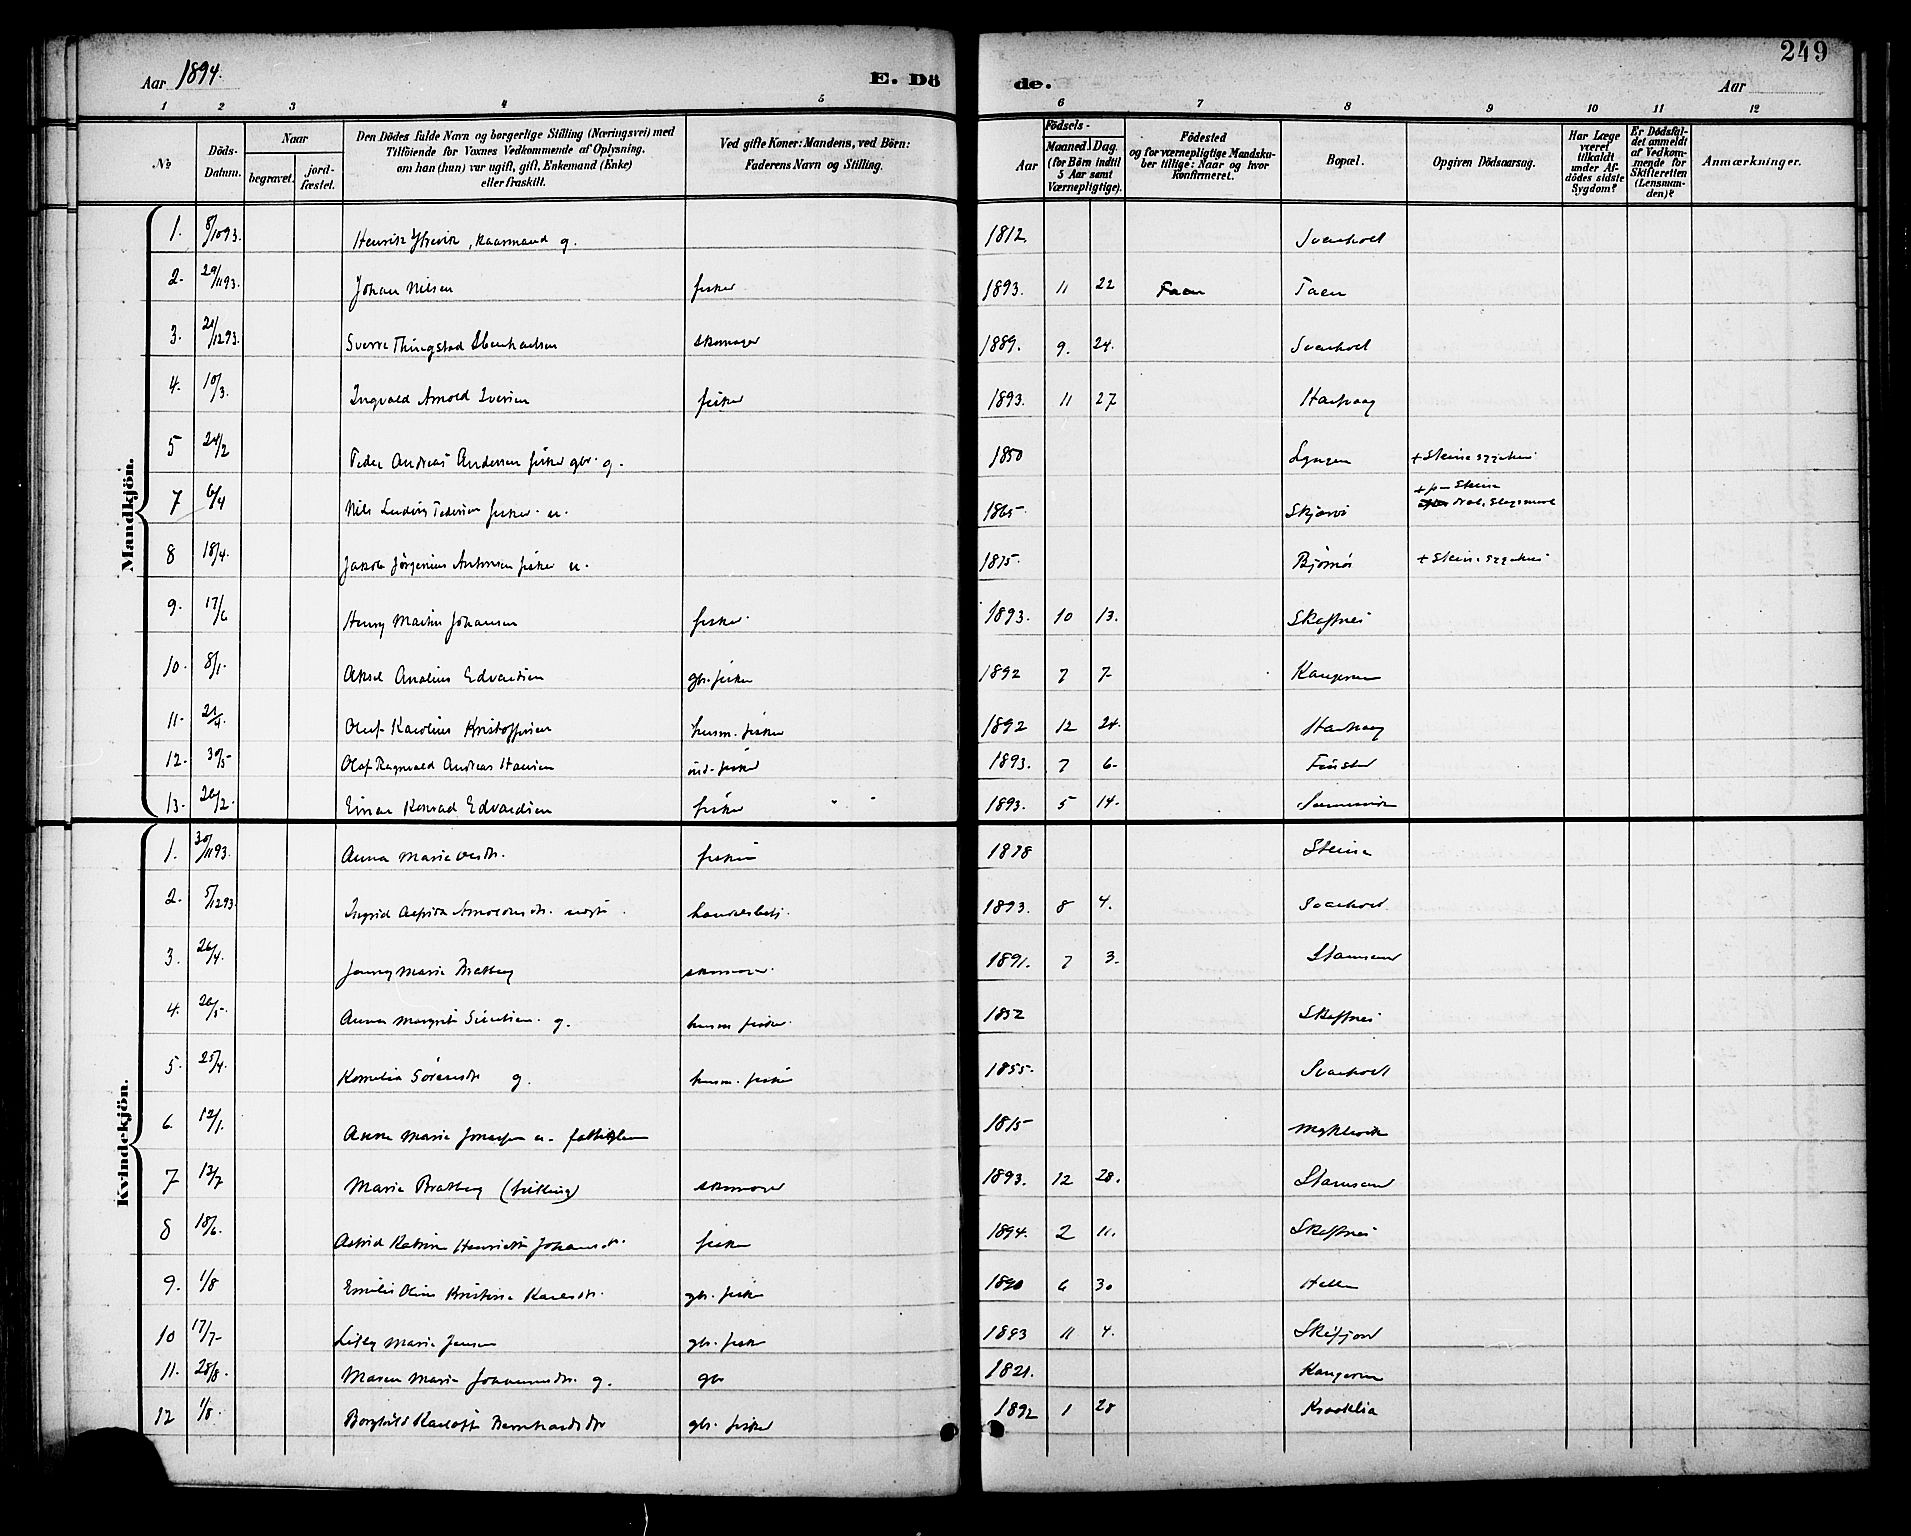 249
Aar 1894. E. Dö de. Aar
1 2 3 4 5 6 7 8 9 10 11 12
№ Döds-Datum. Naar begravet. jord-fæstet. Den Dödes fulde Navn og borgerlige Stilling (Næringsvei) med Tilföiende for Voxnes Vedkommende af Oplysning, om han (hun) var ugift, gift, Enkemand (Enke) eller fraskilt. Ved gifte Koner: Mandens, ved Börn: Faderens Navn og Stilling. Födsels- Aar Maaned Dag. (for Börn indtil 5 Aar samt Værnepligtige). Födested og for værnepligtige Mandskaber tillige: Naar og hvor Konfirmeret. Bopæl. Opgiven Dödsaarsag. Har Læge været tilkaldt under Afdödes sidste Sygdom? Er Dödsfaldet anmeldt af Vedkommende for Skifteretten (Lensmanden)? Anmærkninger.
Mandkjön.
1. 8/10 93. Henrik, kaarmand g. 1812. Svarholt
2. 29/11 93. Johan Nilsen fisker 1893. 11 22 Taen Taen
3. 20/12 93. Sverre Thingstad skomager 1889. 9. 24. Svarholt
4. 10/3. Ingvald Arnold Iversen fisker 1893. 11 27
5 24/2 Peder Andreas Andersen fisker gbr. g. 1850 Lyngen + Steine sygehus
7 6/4 Nils Ludvig Pedersen fisker u. 1865 Skjærvö + p- Steine
8 18/4. Jakob Jörgenius Antonsen fisker u. 1875 Björnör + Steine sygehus
9. 17/6 Henry Martin Johansen fisker 1893. 10 13. Skaftnes
10. 8/1. Aksel Analius Edvardsen gbr. fisker 1892 7 7 Kangerne
11. 21/4. Oluf Karolius Kristoffersen husm. fisker 1892 12 24.
12. 30/5 Olaf Ragnvald Andreas Hansen ind. fisker 1893. 7 6.
13. 26/2. Einar Konrad Edvardsen fisker " " 1893. 5 14.
Kvindekjön.
1. 30/11 93. Anna Marie fisker 1878 Steine
2. 5/12 93. Ingrid handelsbetj. 1893. 8 4. Svarholt
3. 26/4. Jenny Marie Bratberg skomager 1891. 7 3. Stamsund
4. 26/5. Anna Margrit g. husm. fisker 1852 Skaftnes
5. 25/4. Kornelia Sörensdtr g. husm. fisker 1855. Svarholt
6. 12/1. Anne Marie u. 1815
7 13/7 Marie Bratberg (tvilling) skomager 1893. 12 28. Stamsund
8 18/6. Astrid Katrine Henriette Johansdtr. fisker 1894. 2 11. Skaftnes
9. 1/8 Emilie Oline Kristine Karlsdtr. gbr. fisker 1890 6 30 Helle
10 17/7 Marie Jensen gbr. fisker 1893 11 4. Skifjord
11. 28/8. Maren Marie Johannesdtr. g. gbr 1821. Kangerne
12 1/8. Borghild Karlotte Bernhardsdtr gbr. fisker 1892 1 28 Kraaklia